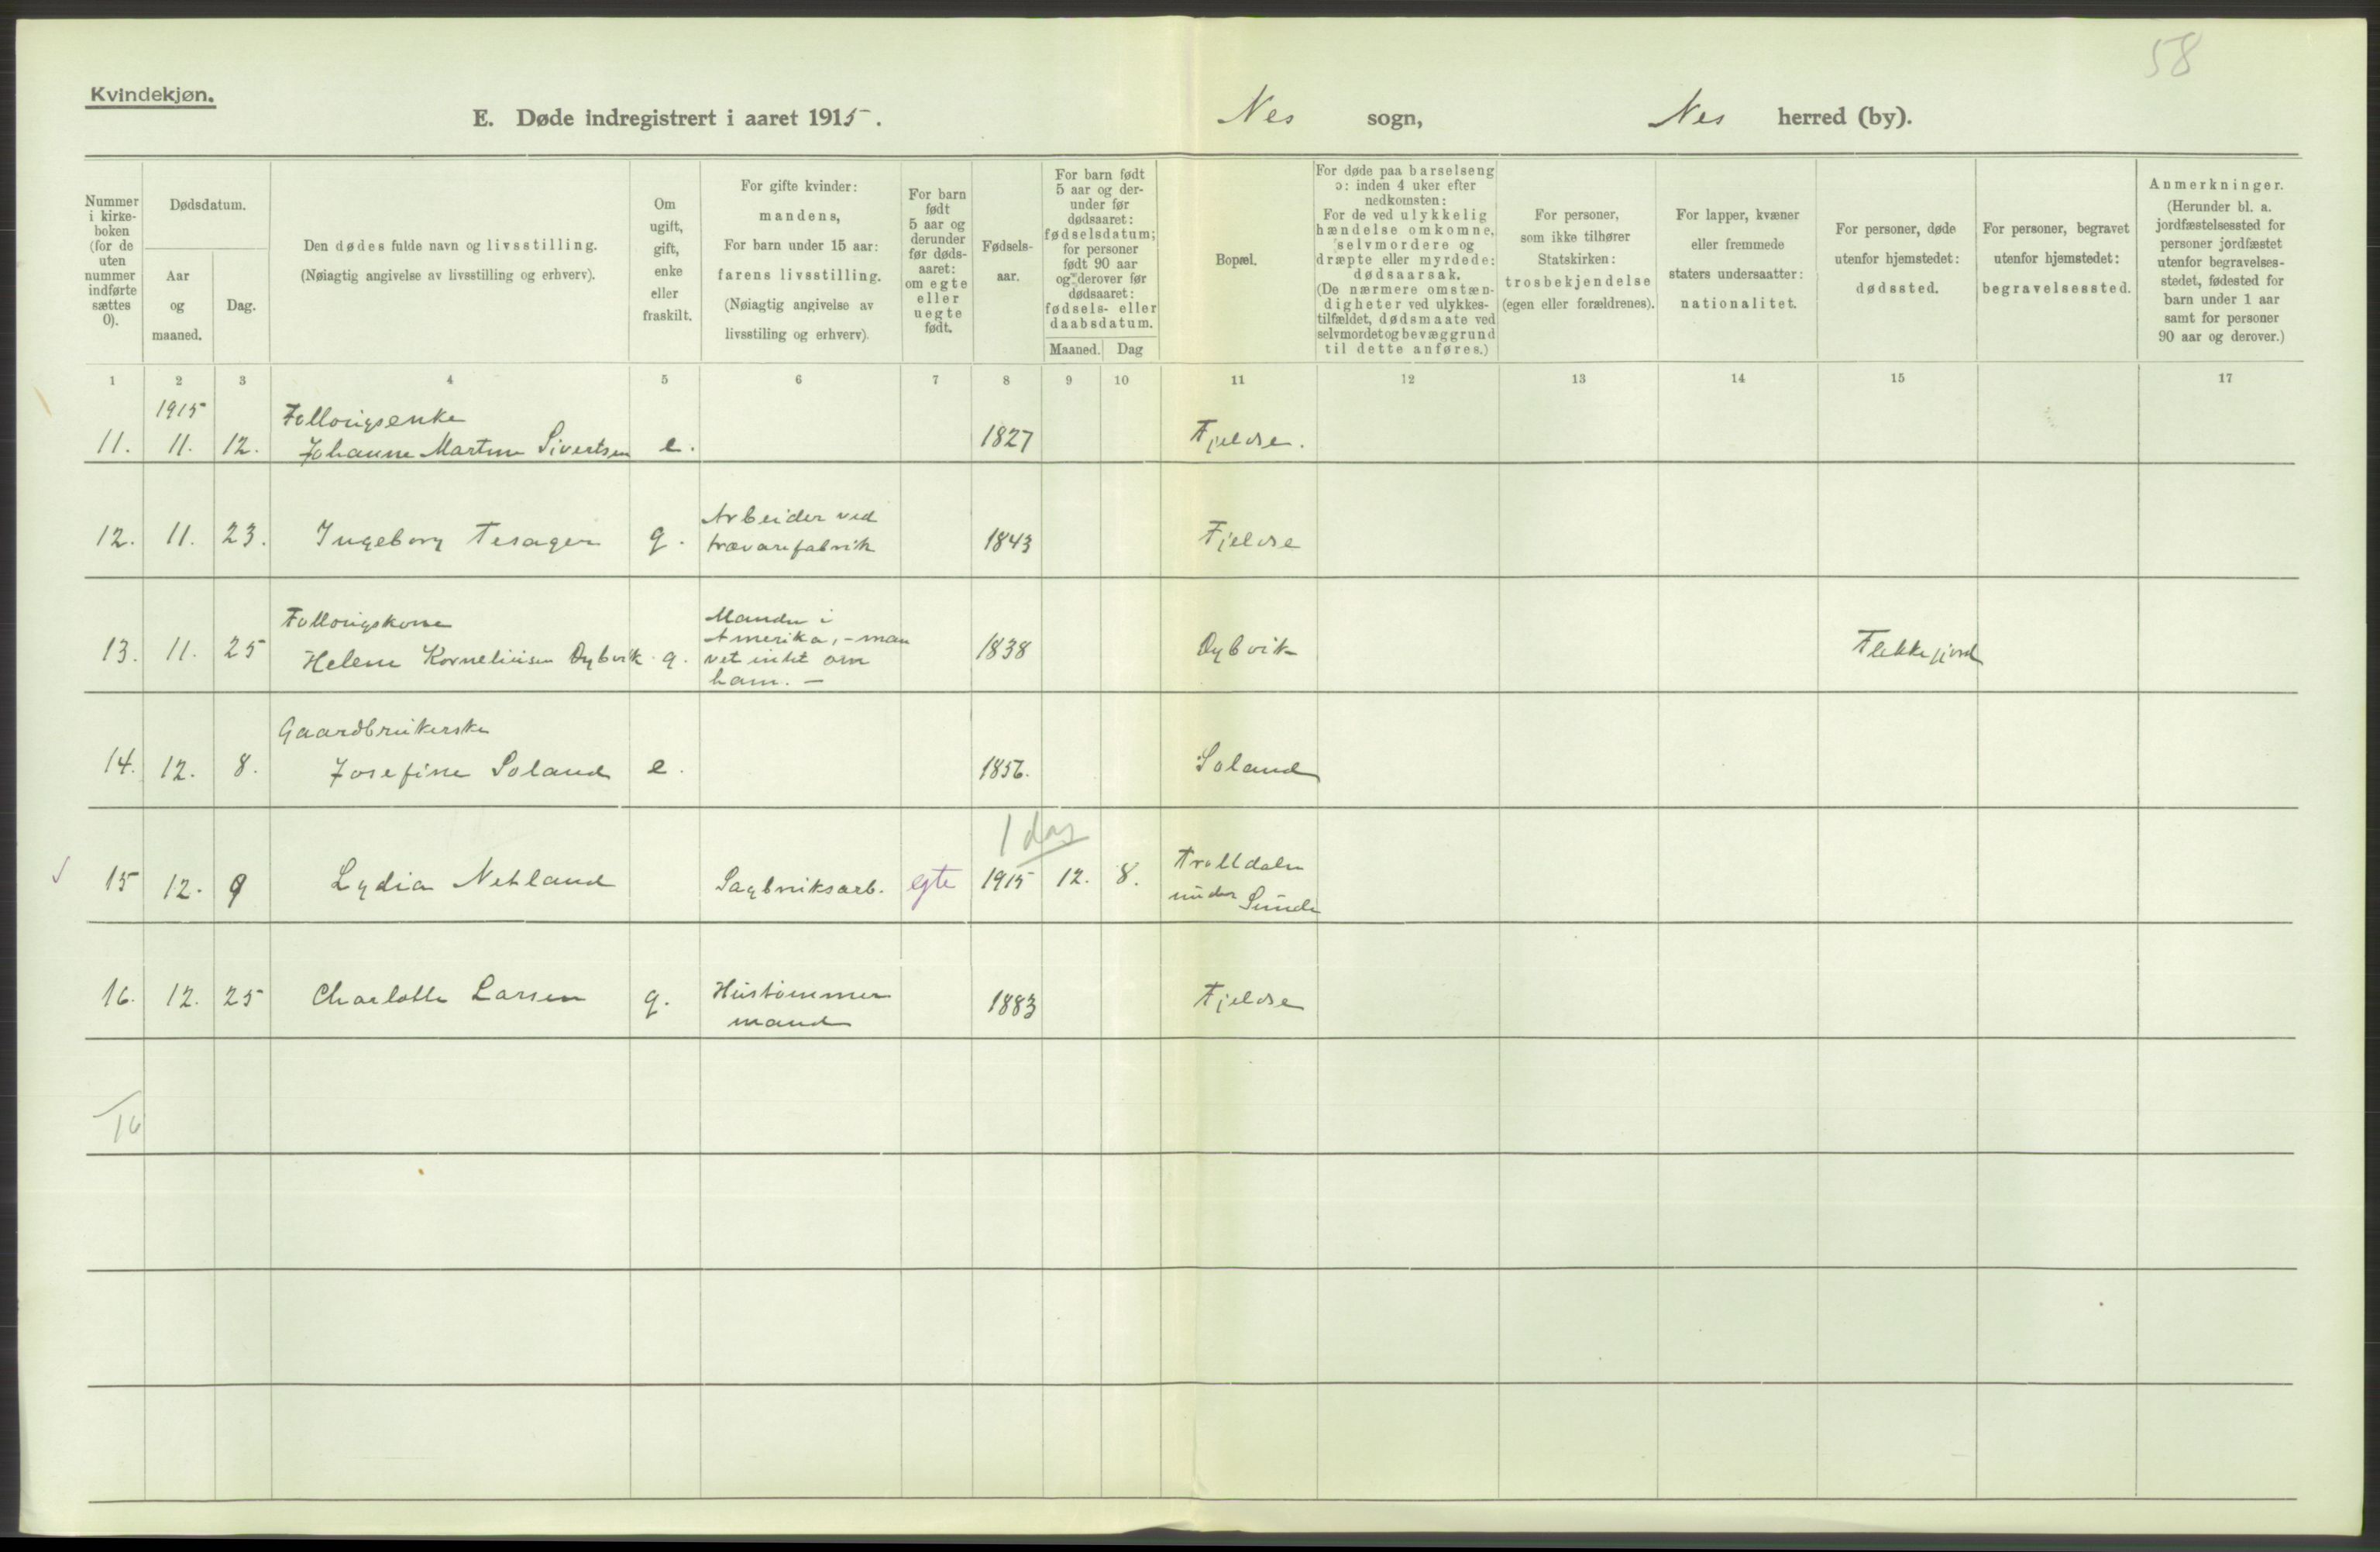 58
Kvindekjøn.
E. Døde indregistrert i aaret 1915. Nes sogn, Nes herred (by).
Nummer i kirke-boken (for de uten nummer indførte sættes 0).
Dødsdatum.
Aar og maaned.
Dag.
Den dødes fulde navn og livsstilling.
(Nøiagtig angivelse av livsstilling og erhverv).
Om ugift, gift, enke eller fraskilt.
For gifte kvinder:
mandens,
For barn under 15 aar:
farens livsstilling.
(Nøiagtig angivelse av
livsstiling og erhverv).
For barn født 5 aar og derunder før døds-aaret: om egte eller uegte født.
Fødsels-aar.
For barn født
5 aar og der-
under før
dødsaaret:
fødselsdatum;
for personer
født 90 aar
og derover før
dødsaaret:
fødsels- eller
daabsdatum.
Maaned. Dag
Bopæl.
For døde paa barselseng
ɔ: inden 4 uker efter
nedkomsten:
For de ved ulykkelig
hændelse omkomne,
selvmordere og
dræpte eller myrdede:
dødsaarsak.
(De nærmere omstæn-
digheter ved ulykkes-
tilfældet, dødsmaate ved
selvmordet og bevæggrund
til dette anføres.)
For personer,
som ikke tilhører
Statskirken:
trosbekjendelse
(egen eller forældrenes).
For lapper, kvæner
eller fremmede
staters undersaatter:
nationalitet.
For personer, døde
utenfor hjemstedet:
dødssted.
For personer, begravet
utenfor hjemstedet:
begravelsessted.
Anmerkninger.
(Herunder bl. a.
jordfæstelsessted for
personer jordfæstet
utenfor begravelses-
stedet, fødested for
barn under 1 aar
samt for personer
90 aar og derover.)
1 2 3 4 5 6 7 8 9 10 11 12 13 14 15 17
1915 Follougsenke
11. 11. 12. Johanne Martine Sivertsen e. 1827 Fjeldse.
12. 11. 23. Ingeborg Tesager g. Arbeider ved trævarefabrik 1843 Fjeldse
Follougskone
13. 11. 25 Helene Korneliusen Dybvik g. Manden i Amerika, - man vet intet om ham. - 1838 Dybvik Flekkefjord
Gaardbrukerske
14. 12. 8. Josefine Soland e. 1856. Soland
1 dag
15 12. 9 Lydia Netland Sagbruksarb. egte 1915 12. 8. Trolldalen under Sunde
16. 12. 25 Charlotte Larsen g. Hustømmermand 1883 Fjeldse
16